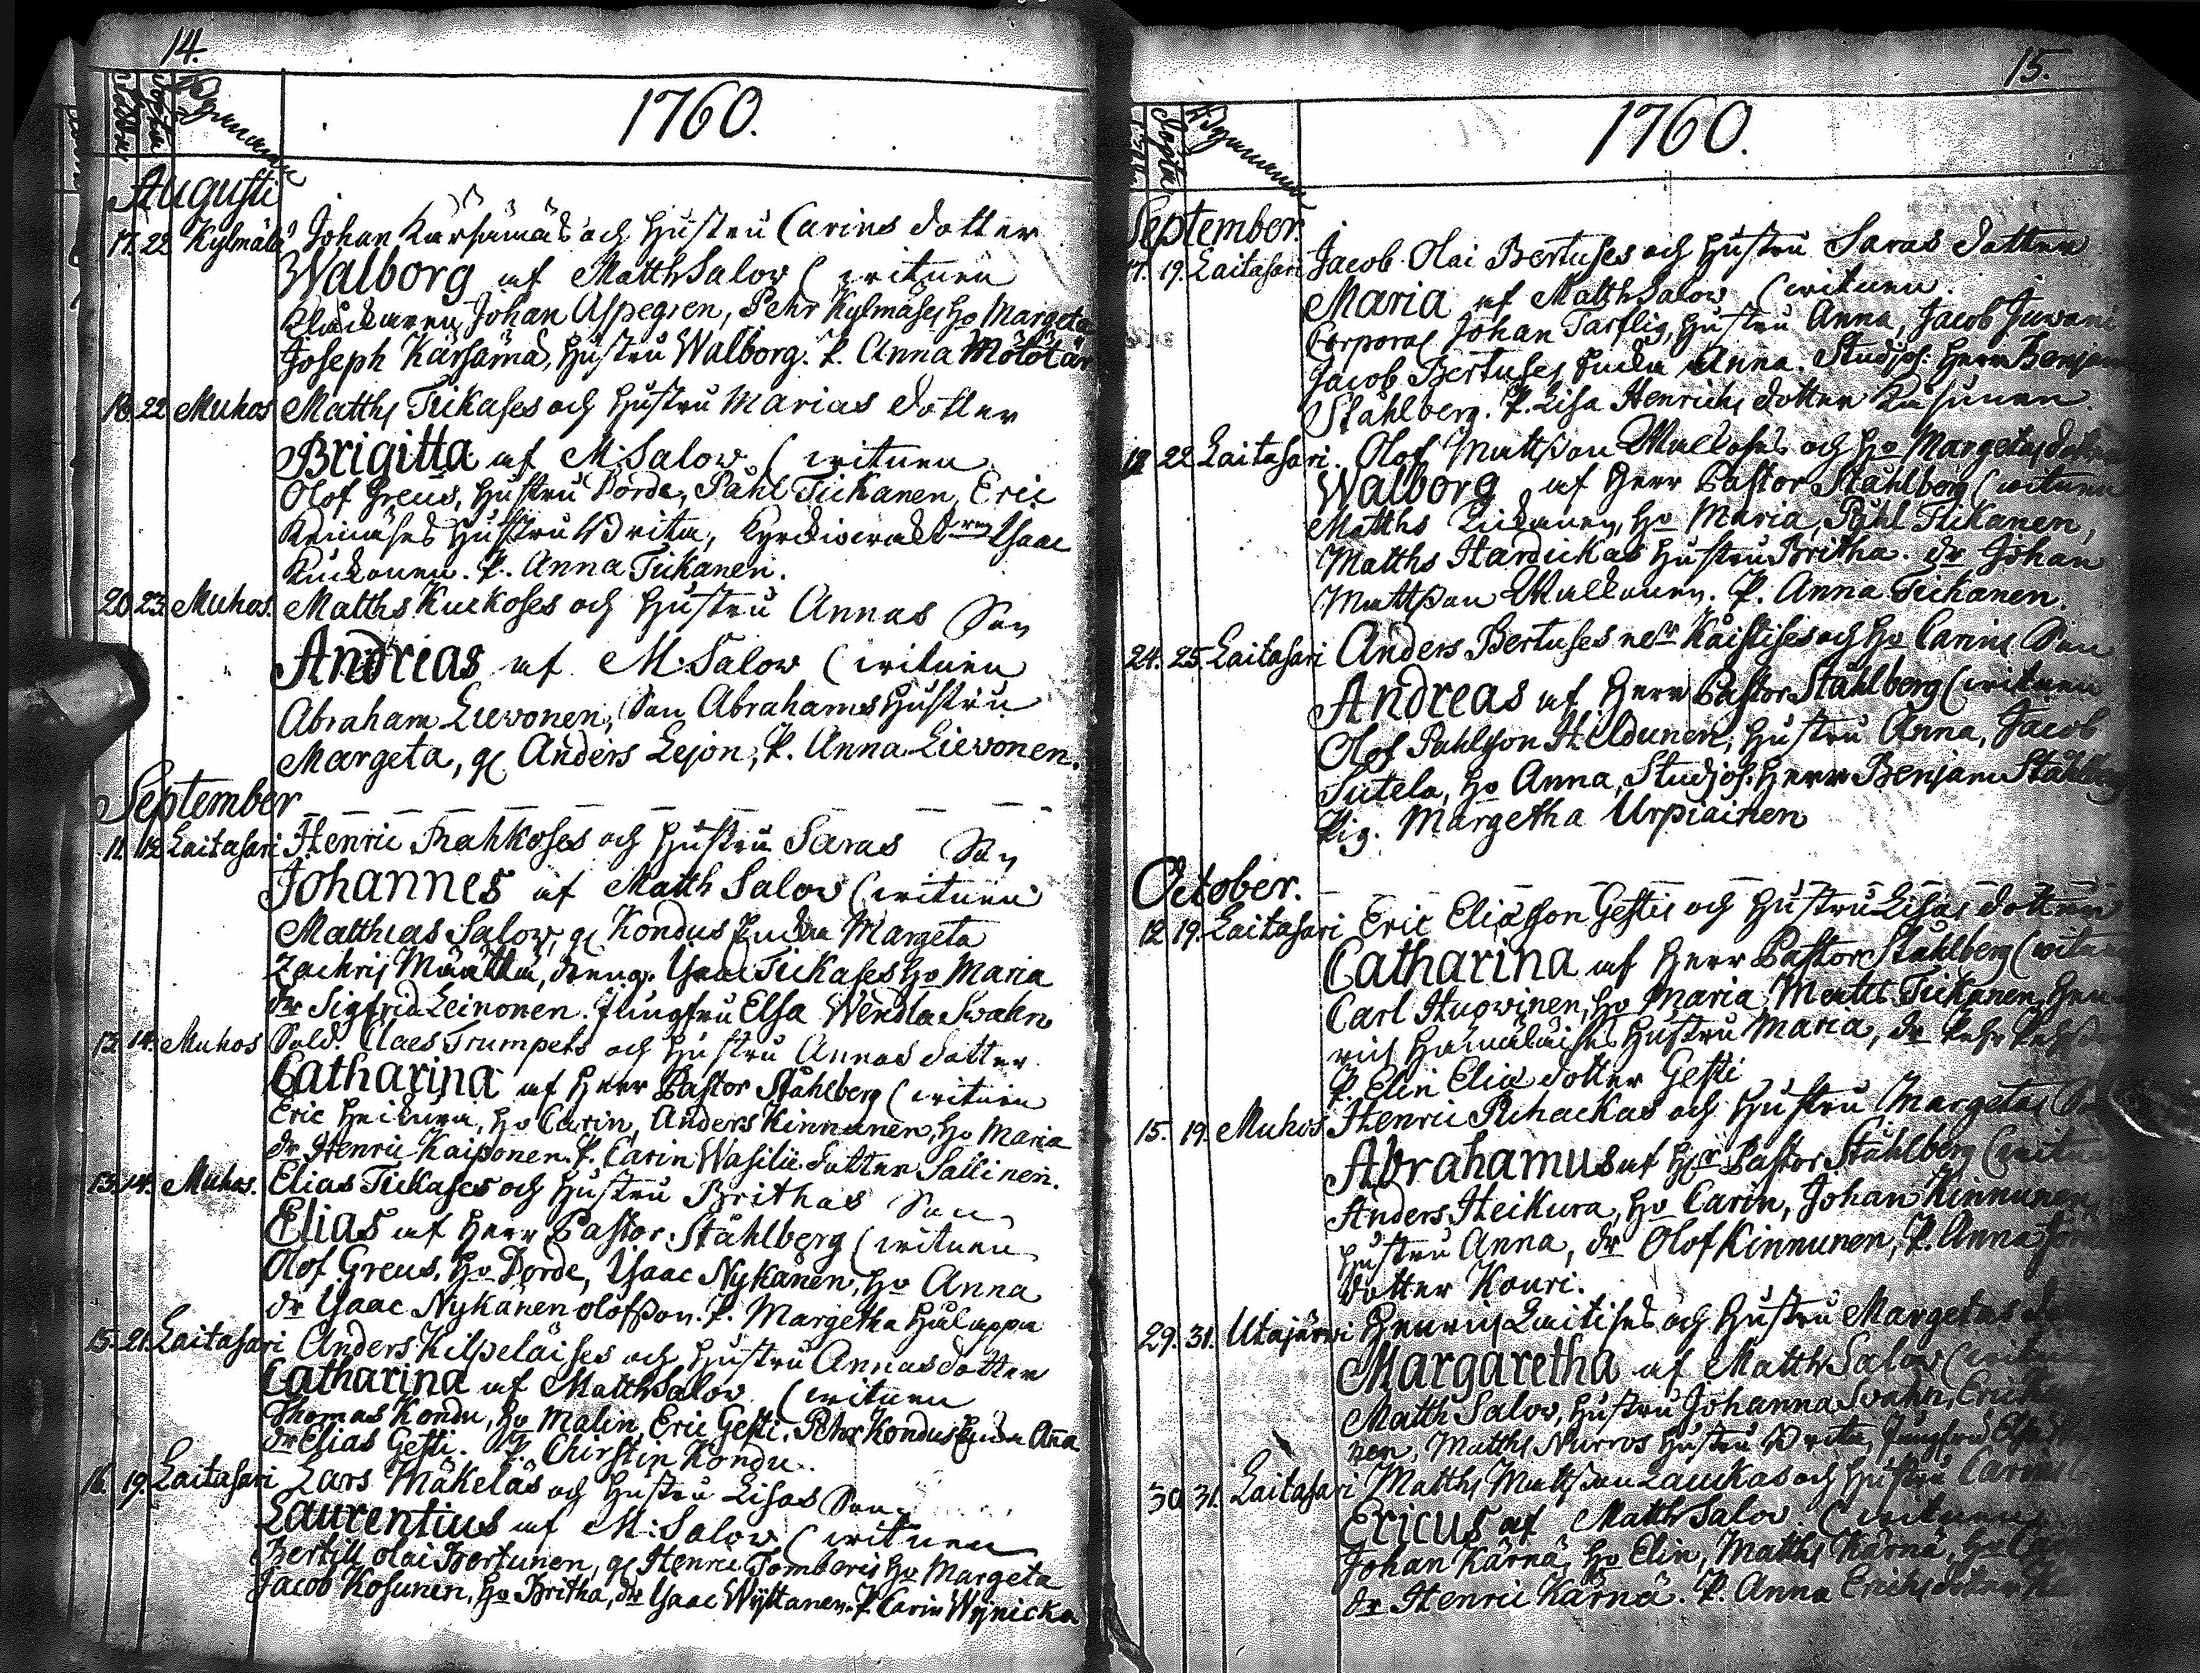 14.
1760.
Augusti
17. 22 Kylmälä Johan Kärsämäs och Hustru Carins dotter
Walborg af Matth Salow (witnen
Klockaren Johan Aspegren, Pehr Kylmäses Ho Margeta
Joseph Kärsämä, Hustru Walborg. P. Anna Mölötär
18. 22 Muhos Matths Tickases och Hustru Marias dotter
Brigitta af M: Salow (witnen
Olof Greus, Hustru Dorde, Påhl Tickanen, Eric
Hustru Brita, Isaac
Kuckonen. P. Anna Tickanen.
20. 23. Muhos. Matths Kuckoses och Hustru Annas Son
Andreas af M: Salow (witnen
Abraham Liewonen, Son Abrahams Hustru
Margeta, gl Anders Lejon, P. Anna Liewonen.
September
11. 12 Laitasari Henric Rahkoses och Hustru Saras Son
Johannes af Matth Salow (witnen
Matthias Salow, gl Kondus Enka Margeta
Zachris Määttä, dreng. Isaac Tickases Ho Maria
dr Sigfrid Leinonen. Jungfru Elsa Wendla Swahn
13. 14. Muhos Sold. Claes Trumpets och Hustru Annas dotter
Catharina af Herr Pastor Ståhlberg (witnen
Eric Heikura, Ho Carin, Anders Kinnunen, Ho Maria
dr Henric Kaiponen. P. Carin Wasilii dotter Sallinen.
13. 14. Muhos. Elias Tickases och Hustru Brithas Son
Elias af Herr Pastor Ståhlberg (witnen
Olof Greus, Ho Dorde, Isaac Nykänen, Ho Anna
dr Isaac Nykänen olofsson. P. Margetha Hulappa
15. 21. Laitasari Anders Kilpeläises och Hustru Annas dotter
Catharina af Matth Salow (witnen
Thomas Kondu, Ho Malin, Eric Gesti, Pehr Kondus Enka Anna
dr Elias Gesti. P. Chirstin Kondu.
16. 19. Laitasari Lars Mäkeläs och Hustru Lisas Son
Laurentius af M: Salow (witnen
Bertill olai Bertunen, gl Henric Tomberis Ho Margeta
Jacob Kosunen, Ho Britha, dr Isaac Wyttanen. P. Carin Wynicka
15.
1760.
September.
17. 19. Laitasari Jacob Olai Bertuses och Hustru Saras dotter
Maria af Matth Salow (witnen.
Corporal Johan Tarflig, Hustru Anna, Jacob Juwani
Jacob Bertuses Enka Anna. Studjos. Herr Benjam
Ståhlberg. P. Lisa Henrichs dotter Kosunen.
19 22 Laitasari. Olof Mattsson Mulloses och Ho Margetas dotter
Walborg af Herr Pastor Ståhlberg (witnen
Matths Tickanen, Ho Maria, Påhl Tickanen,
Matths Hardickas Hustru Britha. dr Johan
Mattsson Mulkonen. P. Anna Tickanen.
24. 25. Laitasari Anders Bertuses Kaistises och Ho Carins Son
Andreas af Herr Pastor Ståhlberg (witnen
Olof Pahlsson Hildunen, Hustru Anna, Jacob
Sutela, Ho Anna, Studjos. Herr Benjam Ståhlberg
Pig. Margetha Urpiainen
October.
12. 19. Laitasari Eric Eliasson Gestis och Hustru Lisas dotter
Catharina af Herr Pastor Ståhlberg (witnen
Carl Huowinen, Ho Maria, Matts Tickanen, Hen
rich Hämäläises Hustru Maria, dr Pehr
P. Elin Elia dotter Gesti
15. 19. Muhos Henric Pihackas och Hustru Margetas Son
Abrahamus af Hr Pastor Ståhlberg (witnen
Anders Heikura, Ho Carin, Johan Kinnunen,
Hustru Anna, dr Olof Kinnunen, P. Anna
dotter Kouri.
29. 31. Utajärwi Henric Laitises och Hustru Margetas
Margaretha af Matth Salow (witnen
Matth Salow, Hustru Johanna Swahn, Eric
nen, Matths Nurros Hustru Brita, Jungfru Elsa
30. 31. Laitasari Matths Mattsson Laukas och Hustru Carins
Ericus af Matth Salow. (witnen
Johan Kärnä, Ho Elin, Matths Kärnä, Ho
dr Henric Kärnä. P. Anna Erichs dotter